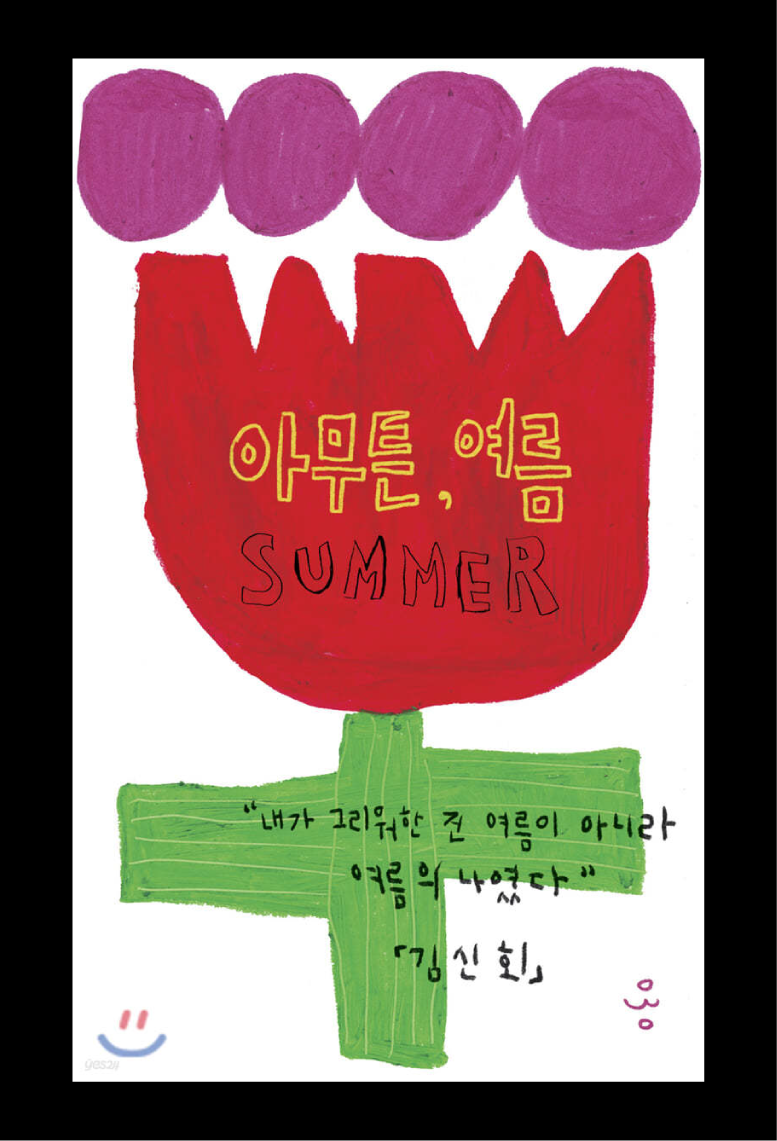 아무튼, 여름
SUMMER
“내가 그리워한 건 여름이 아니라
여름의 나였다”
「김신회」
030
yes24